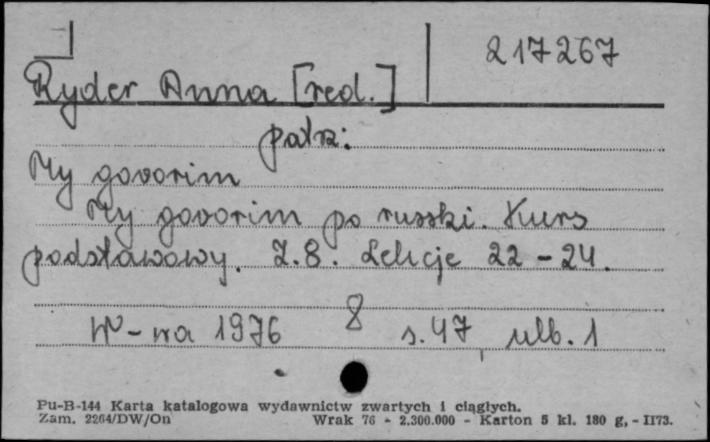 217267
Ryder Anna [red.]
patrz:
My govorim
My govorim po russki. Kurs
podstawowy. Z.8. Lekcje 22-24.
W-wa 1976 8 s.47, nlb.1
Pu-B-144 Karta katalogowa wydawnictw zwartych i ciągłych.
Zam. 2264/DW/On Wrak 76 - 2.300.000 - Karton 5 kl. 180 g, - II73.